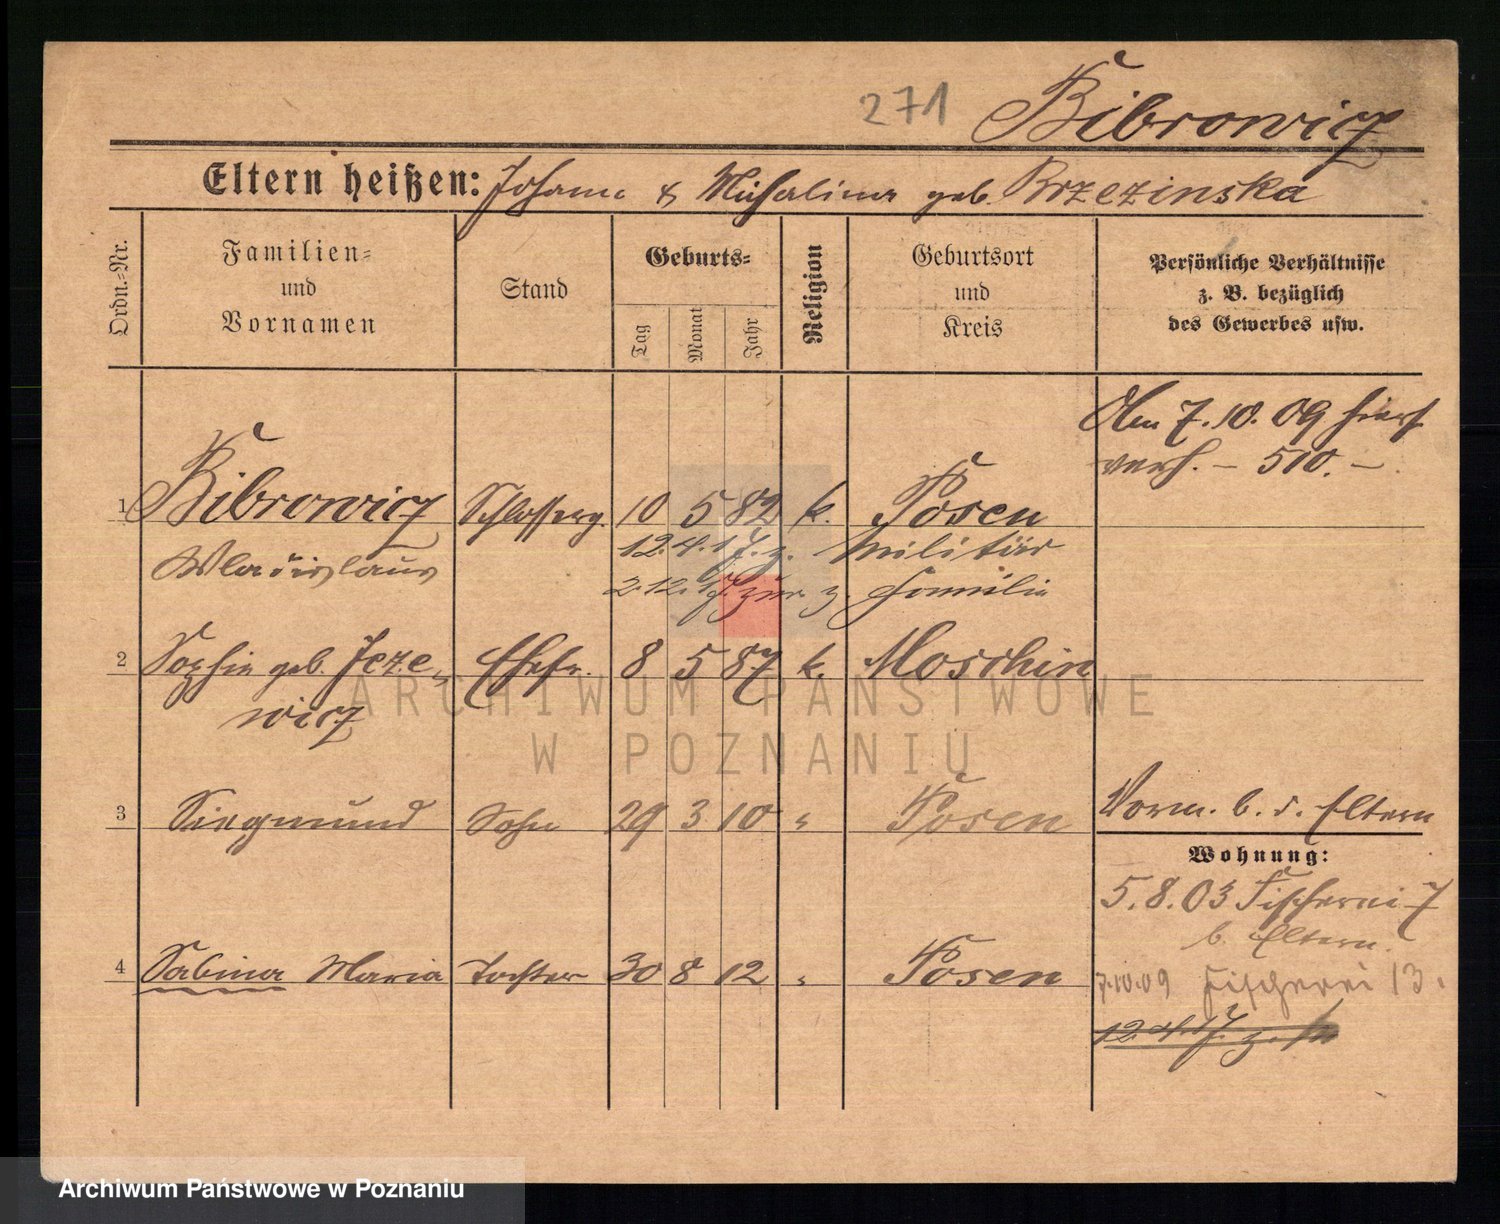 271 Bibrowicz
Eltern heißen: Johann & Michalina geb. Brzezinska
Ordn.-Nr.
Familien- und Vornamen
Stand
Geburts-
Tag Monat Jahr
Religion
Geburtsort und Kreis
Persönliche Verhältnisse
z. B. bezüglich
des Gewerbes usw.
Am 7.10.09 hier
verh. – 510. –
1 Bibrowicz Schlosserg. 10 5 82 k. Posen
Wladislaus 12.4.17. z. Militär
2.12.17. zur z. Familie
2 Sophie geb. Jeze- Ehefr. 8 5 87 k. Moschin
wicz
3 Siegmund Sohn 29 3 10 " Posen
Vorm. b. d. Eltern
Wohnung:
5.8.03 Fischerei 7
b. Eltern.
4 Sabina Maria Tochter 30 8 12 " Posen
7.10.09 Fischerei 13.
12.4.17. z.
ARCHIWUM PAŃSTWOWE
W POZNANIU
Archiwum Państwowe w Poznaniu